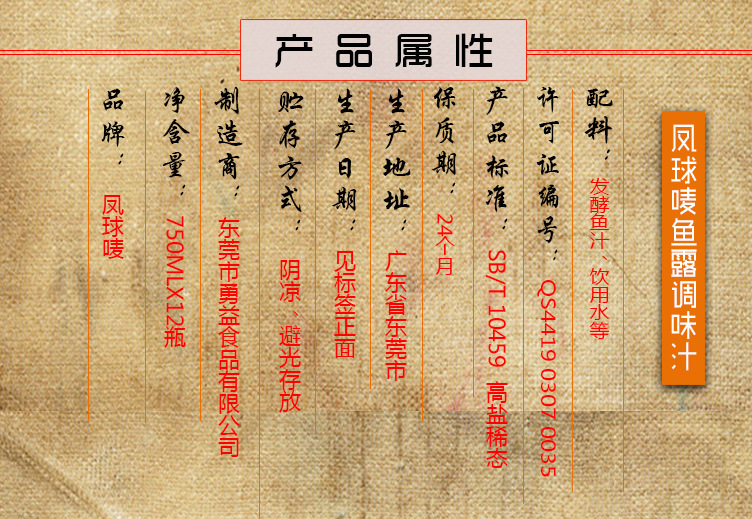 产品属性
凤球唛鱼露调味汁
配料：发酵鱼汁、饮用水等
许可证编号：QS4419 0307 0035
产品标准：SB/T 10459 高盐稀态
保质期：24个月
生产地址：广东省东莞市
生产日期：见标签正面
贮存方式：阴凉、避光存放
制造商：东莞市勇益食品有限公司
净含量：750MLX12瓶
品牌：凤球唛